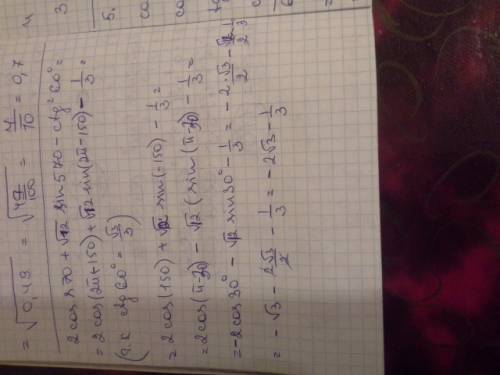 = √0,49 = √(49/100) = 7/10 = 0,7
2cos 570 + √12 sin 570 - ctg² 60° =
= 2cos(2π+150) + √12 sin(2π-150) - 1/3 =
(т.к ctg 60° = √3/3)
= 2cos(150) + √12 sin(-150) - 1/3 =
= 2cos(π-30) - √12 (sin(π-30) - 1/3 =
= -2cos30° - √12 sin30° - 1/3 = -2·√3/2 - √12/2 - 1/3
= -√3 - 2√3/2 - 1/3 = -2√3 - 1/3
5.